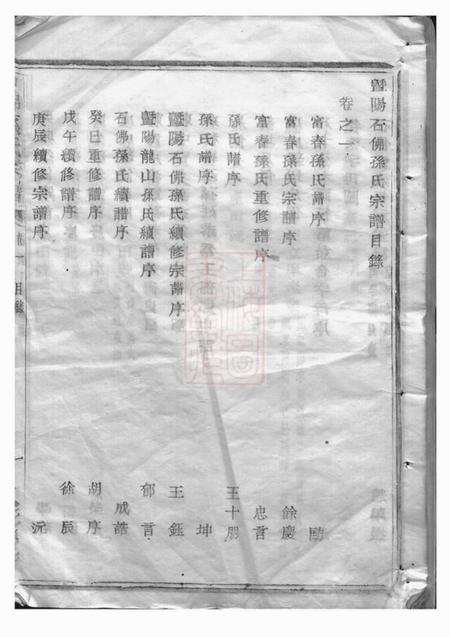 暨陽石佛孫氏宗譜目錄
卷之一
富春孫氏譜序 歐
富春孫氏宗譜序 餘慶
富春孫氏重修譜序 忠言
孫氏譜序 王十朋
孫氏譜序 坤
暨陽石佛孫氏續修宗譜序 王鈺
暨陽龍山孫氏續譜序 郁言
石佛孫氏續譜序 成誥
癸巳重修譜序 胡序
戊午續修譜序 徐辰
庚辰續修宗譜序 沅
卷一 目錄 一